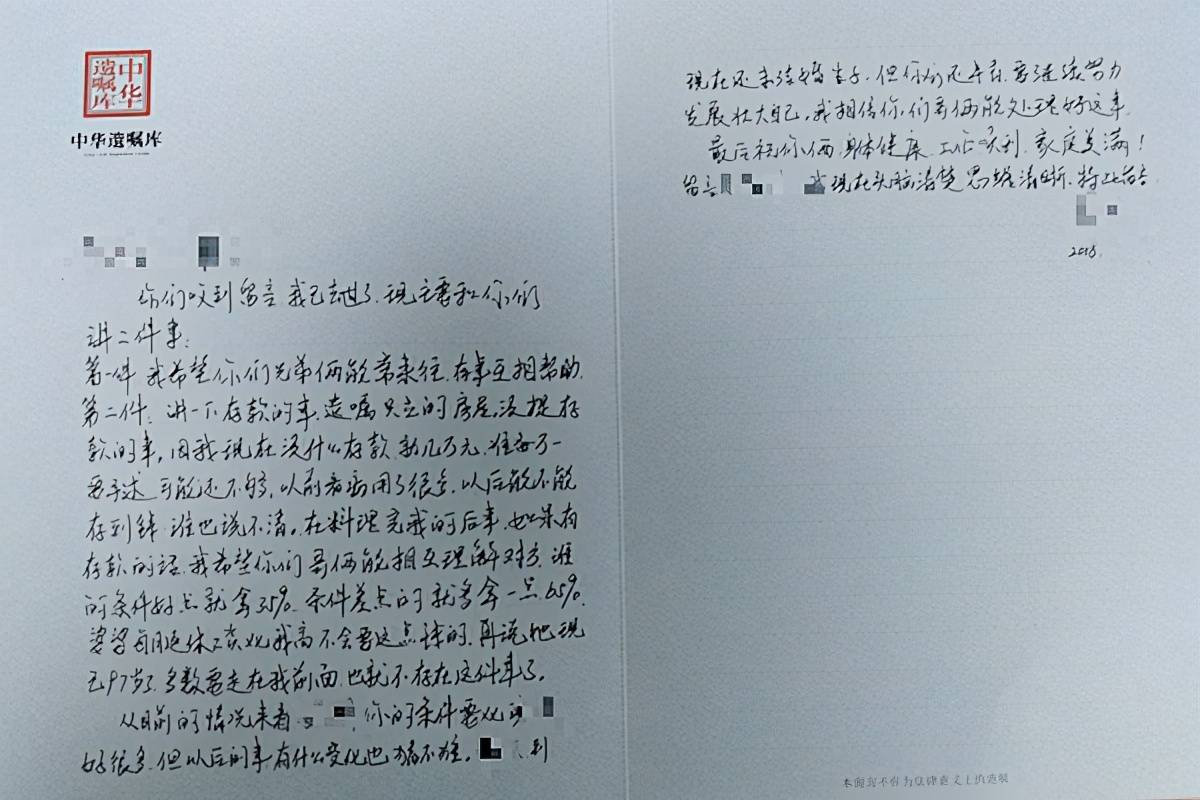 中华
遗嘱库
中华遗嘱库
你们收到留言我已去世了.现主要和你们
讲二件事:
第一件 我希望你们兄弟俩能常来往.有事互相帮助.
第二件:讲一下存款的事.遗嘱只立的房屋,没提存
款的事,因我现在没什么存款 就几万元.准备万一
要手术 可能还不够,以前看病用了很多,以后能不能
存到钱 谁也说不清,在料理完我的后事,如果有
存款的话,我希望你们哥俩能相互理解对方.谁
的条件好点就拿35%.条件差点的就多拿一点65%.
婆婆每月退休工资比我高不会要这点钱的,再说她现
已97岁了.多数要走在我前面.也就不存在这件事了。
从目前的情况来看 你的条件要比
好很多.但以后的事有什么变化也 不准。 到
现在还未结婚生子.但你们还年轻.要继续努力
发展壮大自己,我相信你们哥俩能处理好这事.
最后祝你俩 身体健康.工作 家庭美满!
留言 我现在头脑清楚 思路清晰.特此留言
2018.
本留言不作为法律意义上的遗嘱